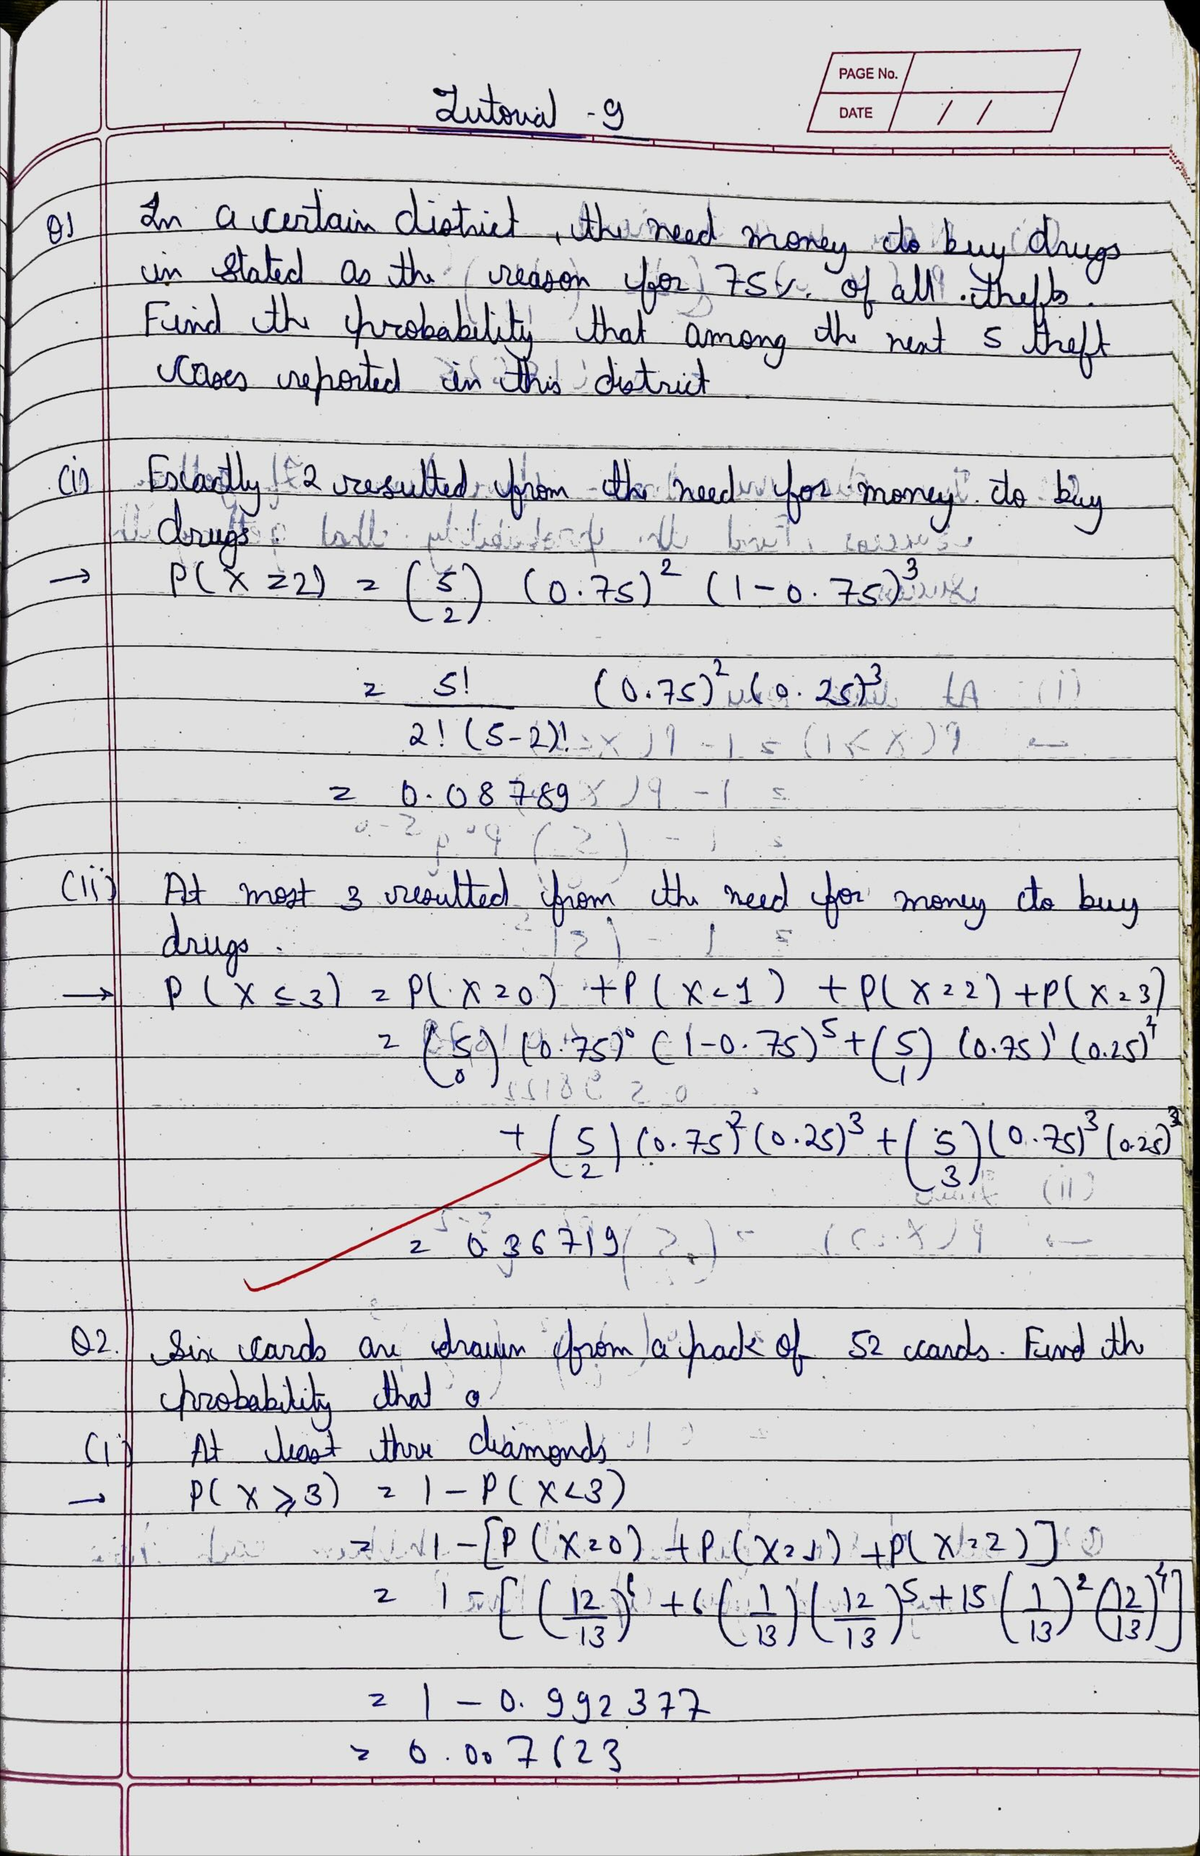 PAGE No.
DATE / /
Tutorial - 9
Q1 In a certain district, the need money to buy drugs
in stated as the reason for 75%. of all thefts.
Find the probability that among the next 5 theft
cases reported in this district
(i) Exactly 2 resulted from the need for money to buy
drugs
→ P(X=2) = (5 2) (0.75)² (1-0.75)³
= 5!/2!(5-2)! (0.75)² (0.25)³
= 0.08789
(ii) At most 3 resulted from the need for money to buy
drugs.
→ P(X≤3) = P(X=0) + P(X=1) + P(X=2) + P(X=3)
= (5 0) (0.75)⁰ (1-0.75)⁵ + (5 1) (0.75)¹ (0.25)⁴
+ (5 2) (0.75)² (0.25)³ + (5 3) (0.75)³ (0.25)²
= 0.36719
Q2. Six cards are drawn from a pack of 52 cards. Find the
probability that
(i) At least three diamonds
→ P(X≥3) = 1 - P(X<3)
= 1 - [P(X=0) + P(X=1) + P(X=2)]
= 1 - [(12/13)⁶ + 6(1/13)(12/13)⁵ + 15(1/13)²(12/13)⁴]
= 1 - 0.992377
= 0.007623